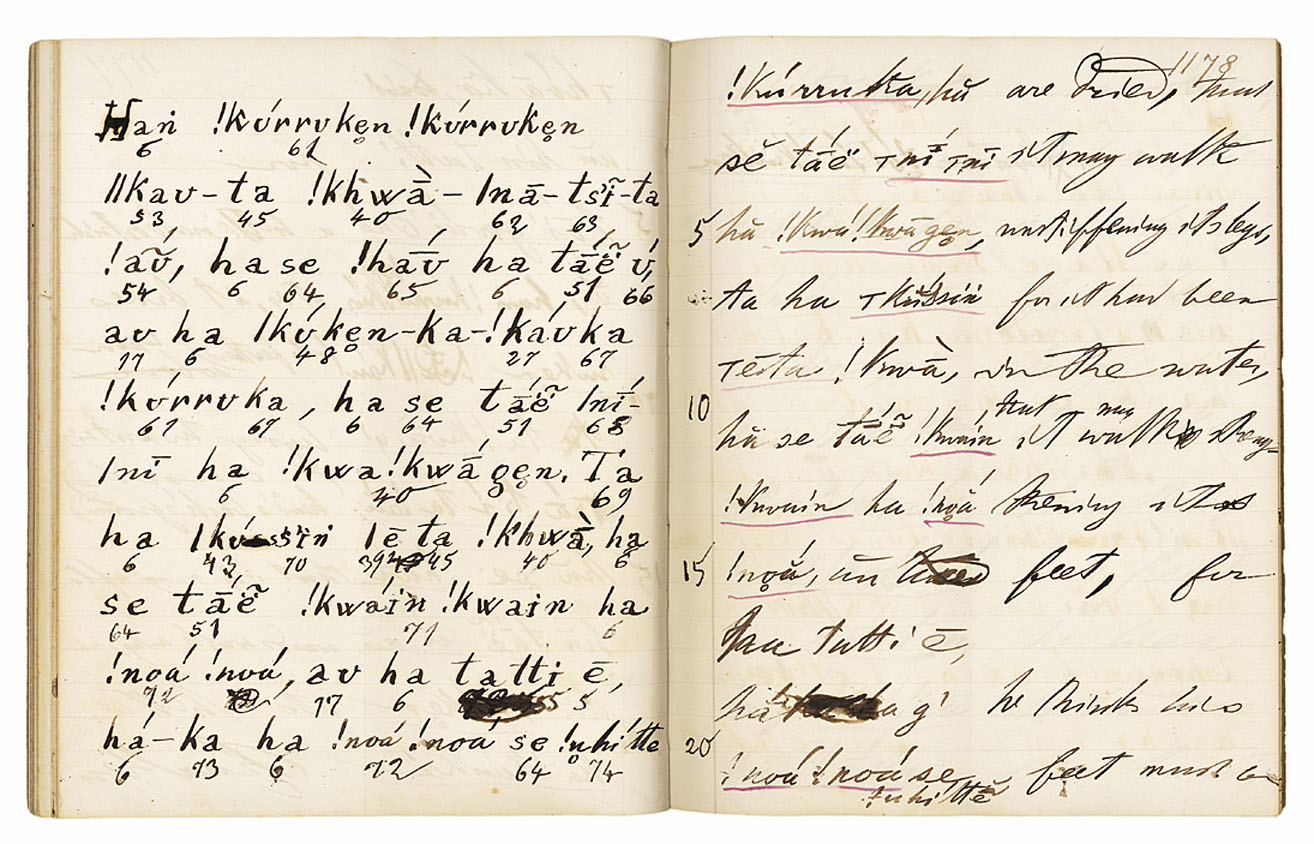 Haṅ !kúrruken !kúrruken
6 61
ǁkau-ta !khwà-ǀnā-tsĩ-ta
53 45 40 62 63
!aṹ, ha se !háú ha táḗ ú,
54 6 64 65 6 51 66
au ha ǀkúken-ka-!káuka
17 6 48 27 67
!kúrruka, ha se táḗ ǀní-
61 67 6 64 51 68
ǀnī ha !kwa!kwágen. Ta
6 40 69
ha ssin ǀēta !khwà, ha
6 43 70 39 45 40 6
se táḗ !kwáin !kwain ha
64 51 71 6
!noá !noá, au ha tatti ē,
72 17 6 55 5
há-ka ha !noá !noá se !uhítte
6 73 6 72 64 74
1178
!kúrruka, hă are dried, that
sĕ táĕ it may walk
5 hă !kwá!kwāgen, unstiffening its legs,
ta ha for it had been
!kwà, in the water,
10 hă se táḗ !kwáin that it may walk streng-
!kwain ha !noá thening its
15 !noá, feet, for
tatti ē,
hă he thinks his
20 !noá !noá se feet must
!uhíttĕ